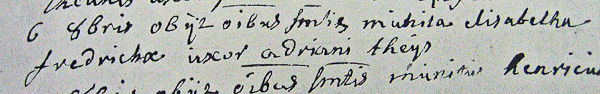 6 8bris obijt oibus smtis munita elisabetha
fredrichx uxor adriani theijs
obijt oibus smtis munitus henricus